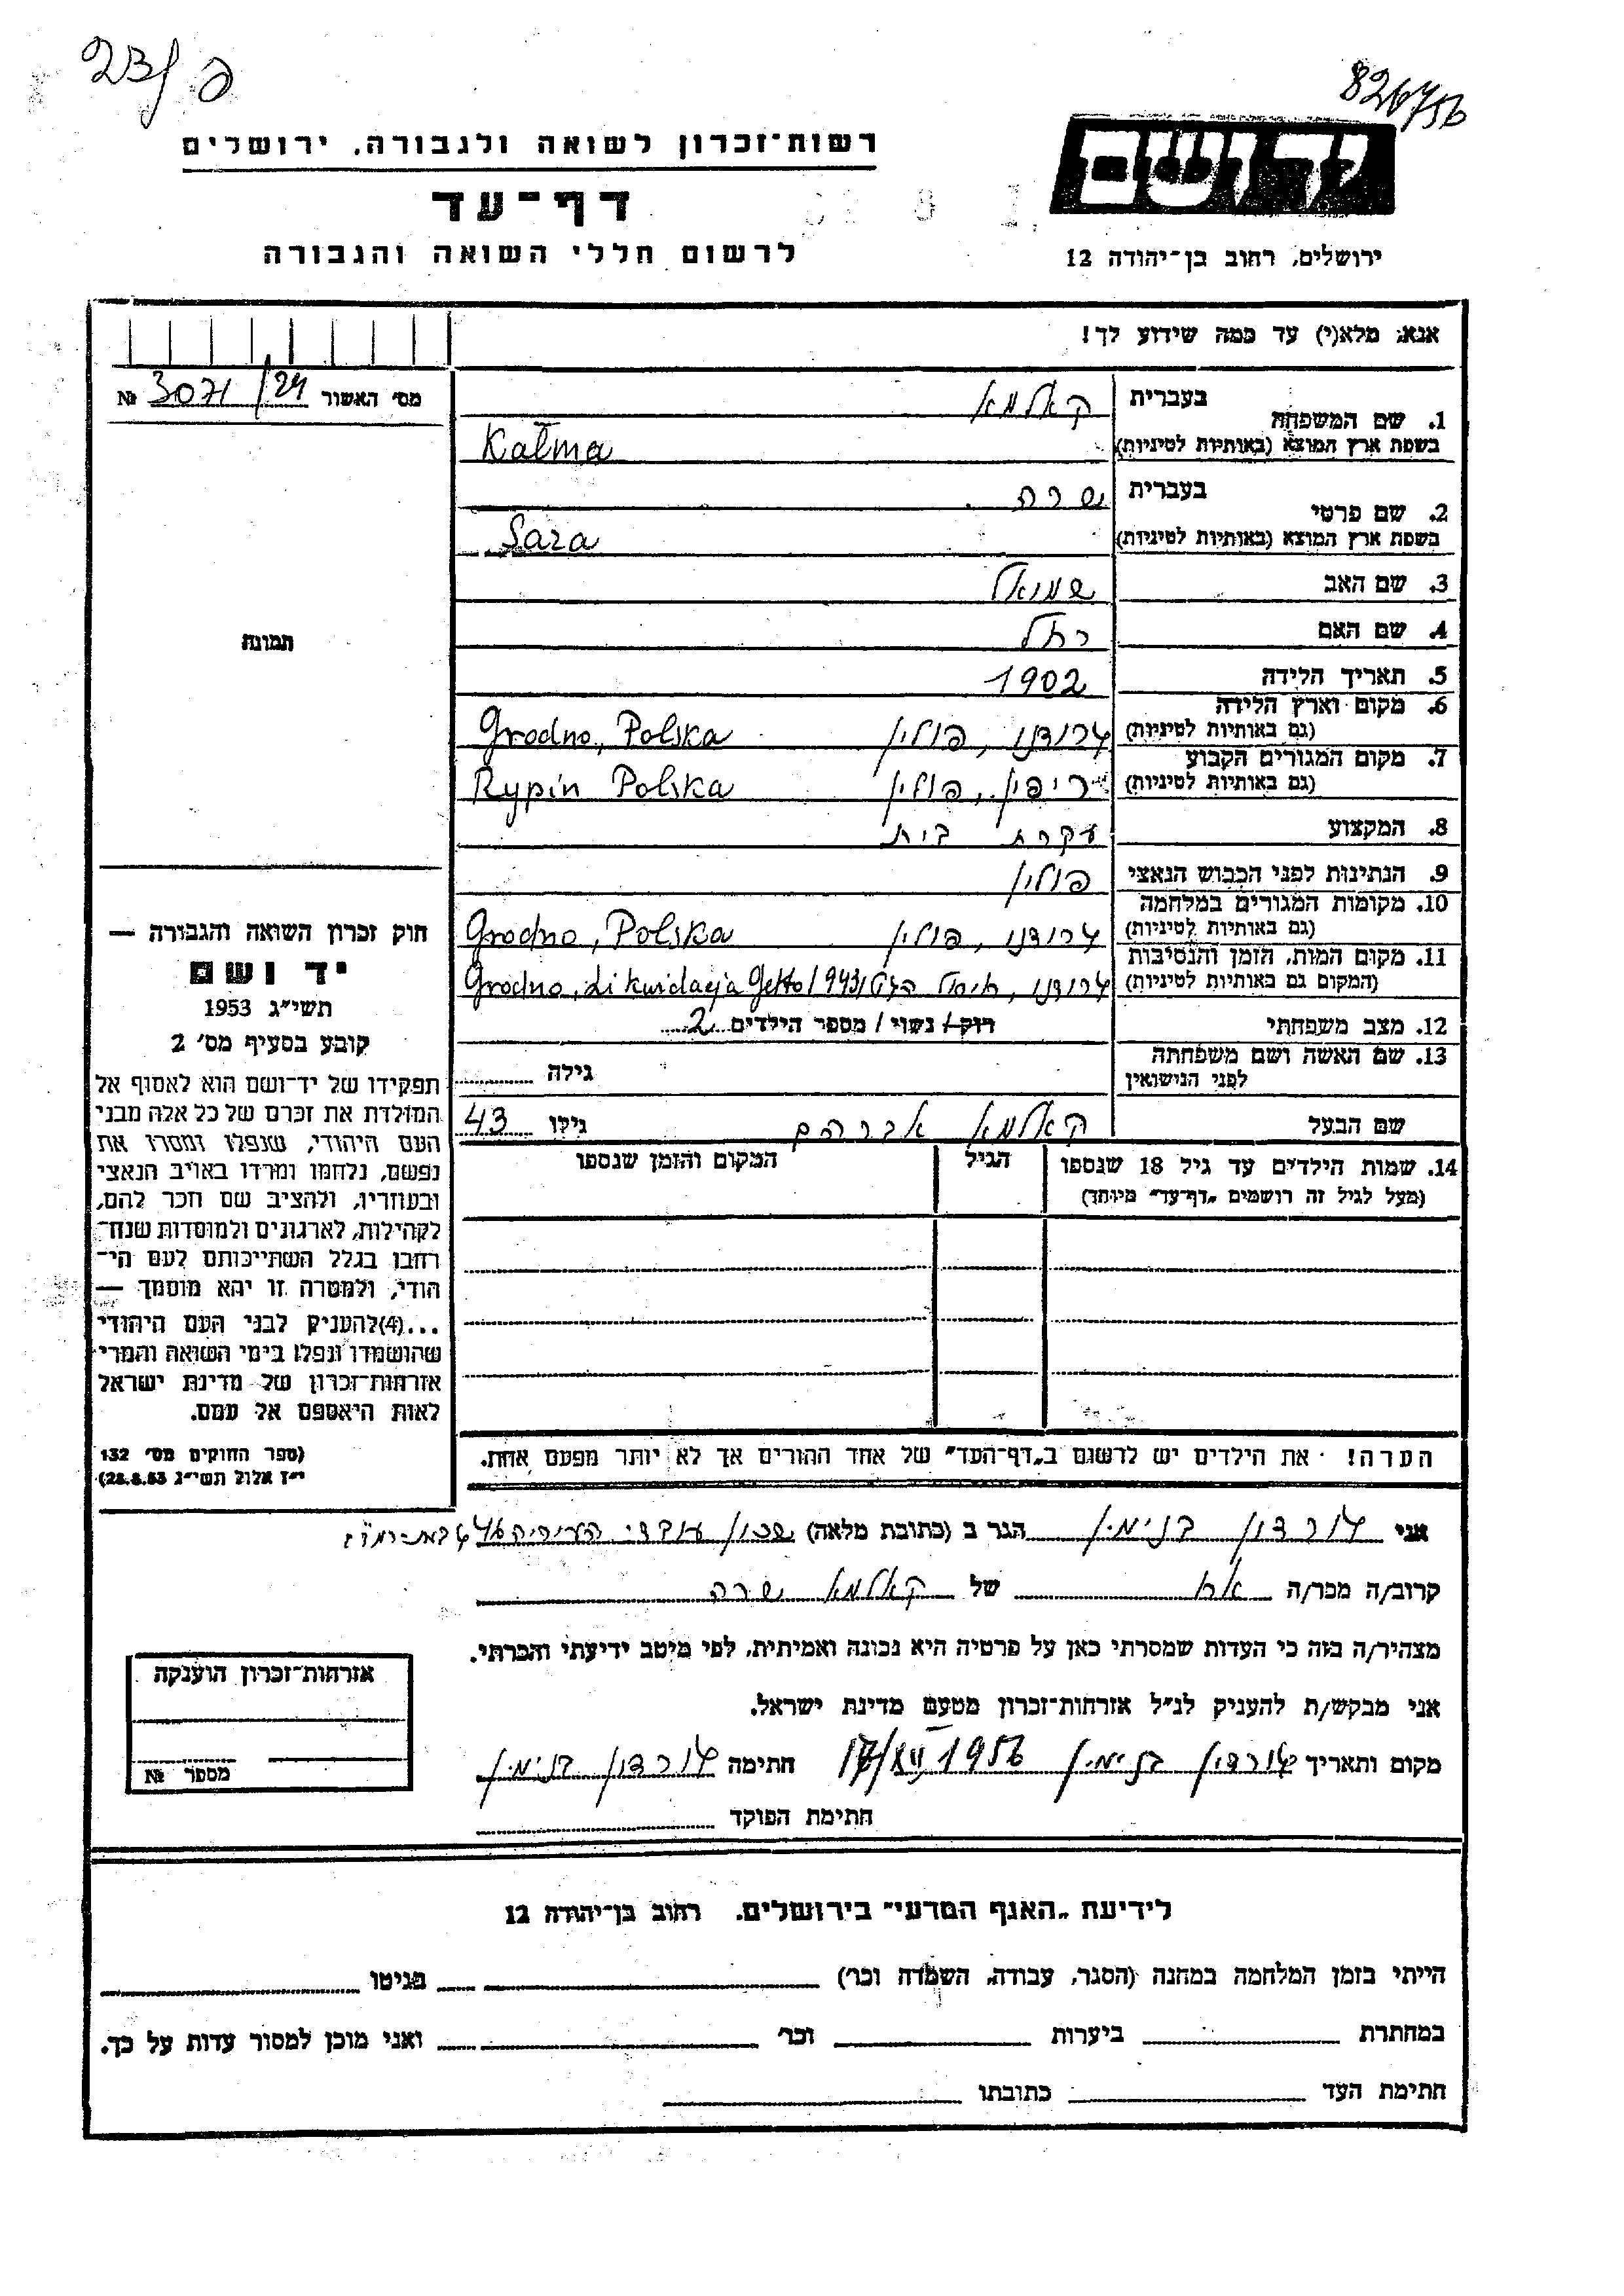 23/פ
826756
רשות־זכרון לשואה ולגבורה, ירושלים
יד ושם
דף־עד
לרשום חללי השואה והגבורה
ירושלים, רחוב בן־יהודה 12
אנא: מלא(י) עד כמה שידוע לך!
מס׳ האשור 3071/24 №
1. שם המשפחה בעברית קאלמא
בשפת ארץ המוצא (באותיות לטיניות) Kałma
2. שם פרטי בעברית שרה
בשפת ארץ המוצא (באותיות לטיניות) Sara
3. שם האב שמואל
4. שם האם רחל
תמונה
5. תאריך הלידה 1902
6. מקום וארץ הלידה (גם באותיות לטיניות) גרודנו, פולין Grodno, Polska
7. מקום המגורים הקבוע (גם באותיות לטיניות) ריפין, פולין Rypin Polska
8. המקצוע עקרת בית
9. הנתינות לפני הכבוש הנאצי פולין
10. מקומות המגורים במלחמה (גם באותיות לטיניות) גרודנו, פולין Grodno, Polska
11. מקום המות, הזמן והנסיבות (המקום גם באותיות לטיניות) גרודנו, חיסול הגטו 1943 Grodno, likwidacja Getto
12. מצב משפחתי רוק/ נשוי/ מספר הילדים 2
13. שם האשה ושם משפחתה לפני הנישואין גילה
שם הבעל קאלמא אברהם גילו 43
14. שמות הילדים עד גיל 18 שנספו הגיל המקום והזמן שנספו
(מעל לגיל זה רושמים „דף־עד״ מיוחד)
הערה! את הילדים יש לרשום ב„דף־העד״ של אחד ההורים אך לא יותר מפעם אחת.
חוק זכרון השואה והגבורה —
יד ושם
תשי״ג 1953
קובע בסעיף מס׳ 2
תפקידו של יד־ושם הוא לאסוף אל
המולדת את זכרם של כל אלה מבני
העם היהודי, שנפלו ומסרו את
נפשם, נלחמו ומרדו באויב הנאצי
ובעוזריו, ולהציב שם וזכר להם,
לקהילות, לארגונים ולמוסדות שנח־
רבו בגלל השתייכותם לעם הי־
הודי, ולמטרה זו יהא מוסמך —
...(4)להעניק לבני העם היהודי
שהושמדו ונפלו בימי השואה והמרי
אזרחות־זכרון של מדינת ישראל
לאות היאספם אל עמם.
(ספר החוקים מס׳ 132
י״ז אלול תשי״ג 28.8.53)
אני גורדון בנימין הגר ב (כתובת מלאה) שכון עובדי העיריה
קרוב/ה מכר/ה אח של קאלמא שרה
מצהיר/ה בזה כי העדות שמסרתי כאן על פרטיה היא נכונה ואמיתית, לפי מיטב ידיעתי והכרתי.
אני מבקש/ת להעניק לנ״ל אזרחות־זכרון מטעם מדינת ישראל.
מקום ותאריך גורדון בנימין 17/XII 1956 חתימה גורדון בנימין
חתימת הפוקד
אזרחות־זכרון הוענקה
מספר №
לידיעת „האגף המדעי״ בירושלים. רחוב בן־יהודה 12
הייתי בזמן המלחמה במחנה (הסגר, עבודה, השמדה וכו׳) בגיטו
במחתרת ביערות וכו׳ ואני מוכן למסור עדות על כך.
חתימת העד כתובתו